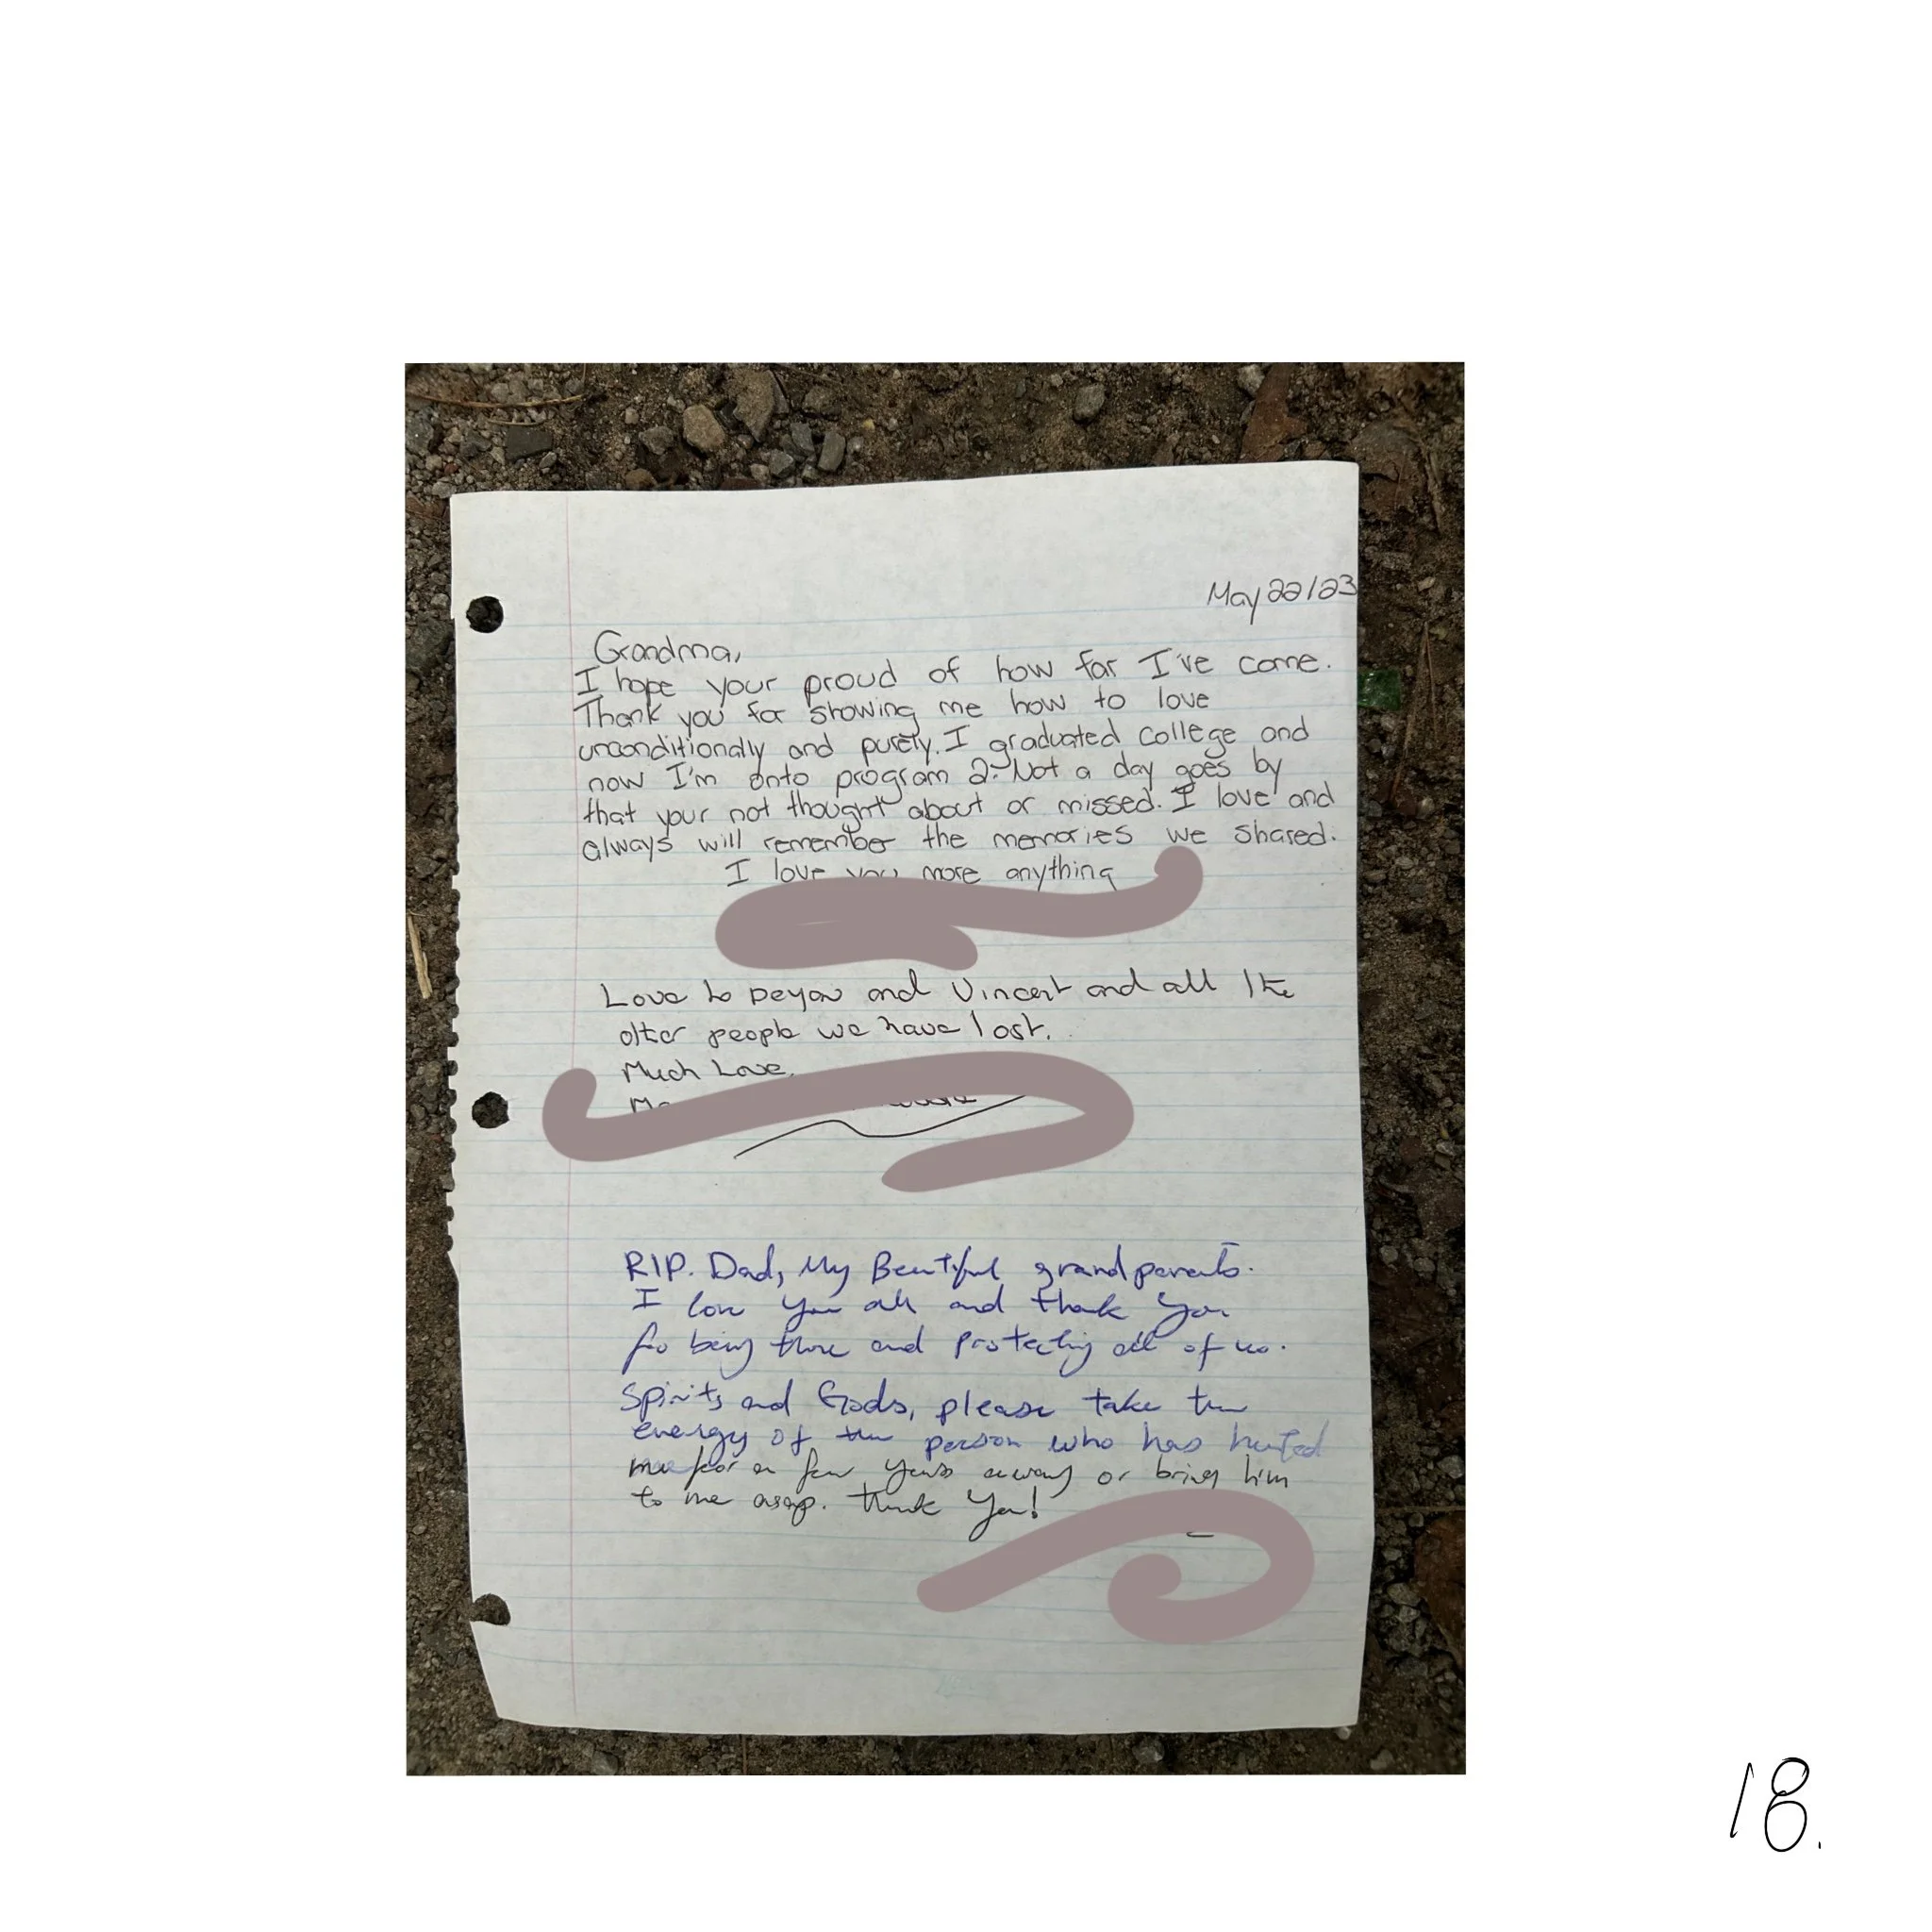 May 22/23
Grandma,
I hope your proud of how far I've come.
Thank you for showing me how to love
unconditionally and purely. I graduated college and
now I'm onto program 2. Not a day goes by
that your not thought about or missed. I love and
always will remember the memories we shared.
I love you more anything
Love to and Vincent and all the
other people we have lost.
Much Love,
RIP. Dad, My Beutiful grandparents.
I love you all and thank you
for being there and protecting all of us.
Spirits and Gods, please take the
energy of the person who has hunted
me for a few years away or bring him
to me asap. Thank You!
18.